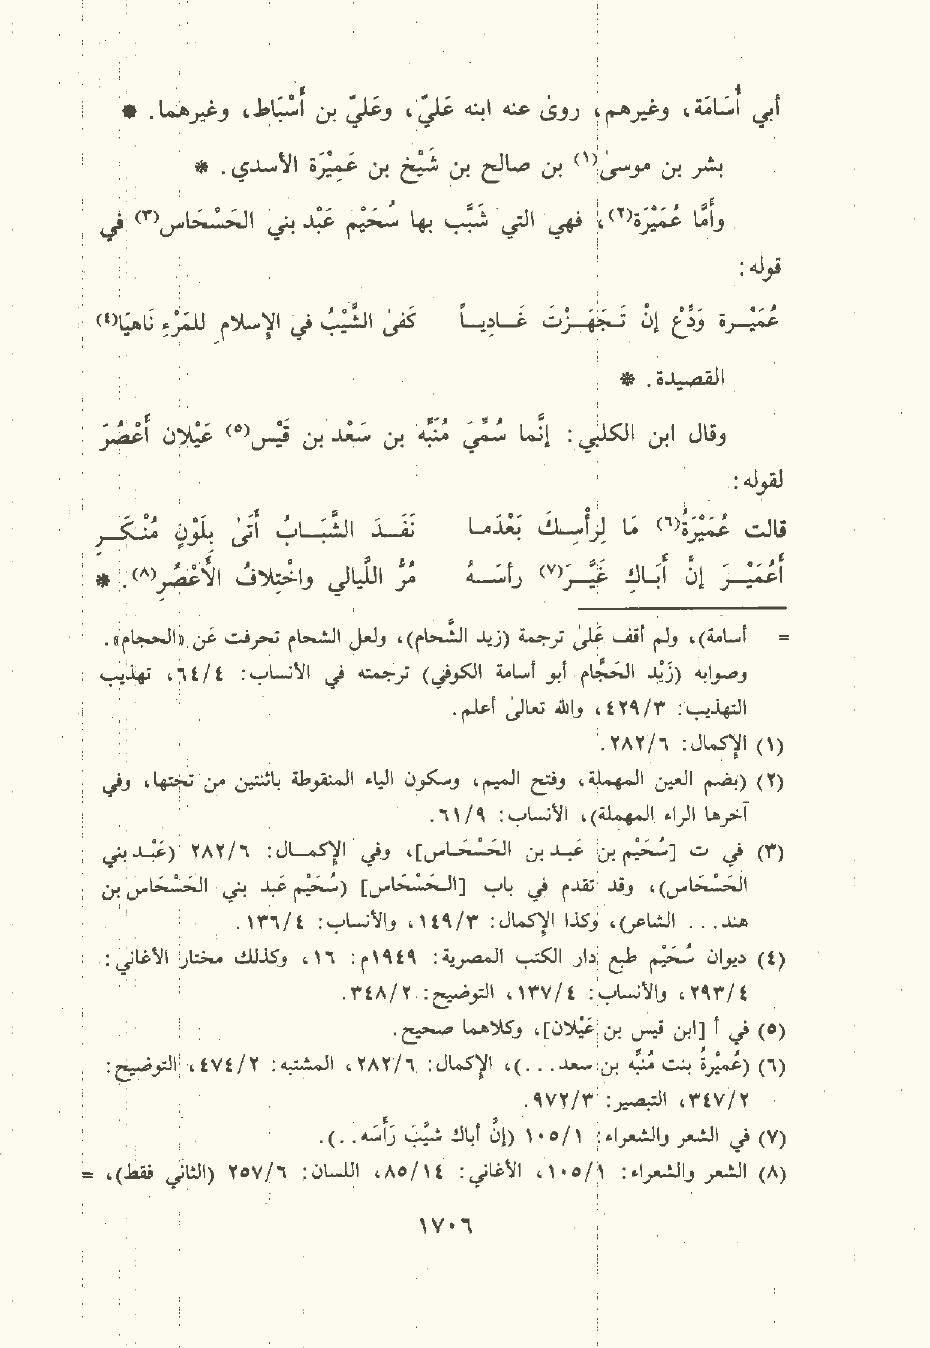 أبي أُسَامَة، وغيرهم، روىٰ عنه ابنه عَليّ، وعَليّ بن أَسْبَاط، وغيرهما. *
بشر بن موسىٰ(١) بن صالح بن شَيْخ بن عَمِيْرَة الأسدي. *
وأَمَّا عُمَيْرَة(٢)، فهي التي شَبَّب بها سُحَيْم عَبْد بني الحَسْحَاس(٣) في
قوله:
عُمَيْـرة وَدِّعْ إنْ تَـجَهَـزْتَ غَـاديـاً    كَفىٰ الشَّيْبُ في الإسلام للمَرْءِ نَاهيَا(٤)
القصيدة. *
وقال ابن الكلبي: إنَّما سُمِّيَ مُنَبِّه بن سَعْد بن قَيْس(٥) عَيْلان أَعْصُرَ
لقوله:
قالت عُمَيْرَةُ(٦) مَا لِرأْسِـكَ بَعْدَمـا    نَفَـدَ الشَّبَـابُ أَتىٰ بِلَوْنٍ مُنْـكَـرِ
أَعُمَيْـرَ إنَّ أَبَـاكِ غَيَّـرَ(٧) رأسَـهُ    مُرُّ اللَّيالي واخْتِلافُ الأَعْصُرِ(٨). *
= أسامة)، ولم أقف علىٰ ترجمة (زيد الشَّحام)، ولعل الشحام تحرفت عَن «الحجام».
وصوابه (زَيْد الحَجَّام أبو أسامة الكوفي) ترجمته في الأنساب: ٦٤/٤، تهذيب
التهذيب: ٤٢٩/٣، والله تعالىٰ أعلم.
(١) الإكمال: ٢٨٢/٦.
(٢) (بضم العين المهملة، وفتح الميم، وسكون الياء المنقوطة باثنتين من تحتها، وفي
آخرها الراء المهملة)، الأنساب: ٦١/٩.
(٣) في ت [سُحَيْم بن عَبـد بن الحَسْحَـاس]، وفي الإكمـال: ٢٨٢/٦ (عَبْـد بني
الحَسْحَاس)، وقد تقدم في باب [الـحَسْحَاس] (سُحَيْم عَبد بني الحَسْحَاس بن
هند... الشاعر)، وكذا الإكمال: ١٤٩/٣، والأنساب: ١٣٦/٤.
(٤) ديوان سُحَيْم طبع دار الكتب المصرية: ١٩٤٩م: ١٦، وكذلك مختار الأغاني:
٢٩٣/٤، والأنساب: ١٣٧/٤، التوضيح: ٣٤٨/٢.
(٥) في أ [ابن قيس بن عَيْلان]، وكلاهما صحيح.
(٦) (عُميْرةُ بنت مُنَبِّه بن سعد...)، الإكمال: ٢٨٢/٦، المشتبه: ٤٧٤/٢، التوضيح:
٣٤٧/٢، التبصير: ٩٧٢/٣.
(٧) في الشعر والشعراء: ١٠٥/١ (إنَّ أباك شيَّبَ رَأْسَه...).
(٨) الشعر والشعراء: ١٠٥/١، الأغاني: ٨٥/١٤، اللسان: ٢٥٧/٦ (الثاني فقط)، =
١٧٠٦